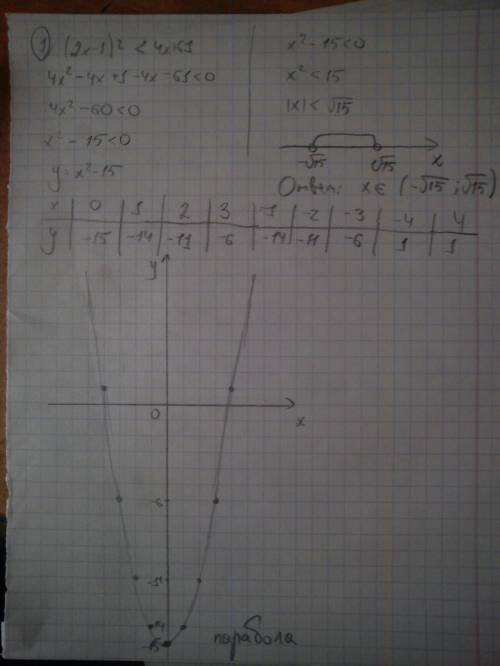 1) (2x-1)² < 4x+61
4x²-4x+1-4x-61<0
4x²-60<0
x²-15<0
y=x²-15
x²-15<0
x²<15
|x|<√15
-√15 √15 x
Ответ: x∈(-√15;√15)
x 0 1 2 3 -1 -2 -3 -4 4
y -15 -14 -11 -6 -14 -11 -6 1 1
y
0 x
-6
-11
-14
-15
парабола